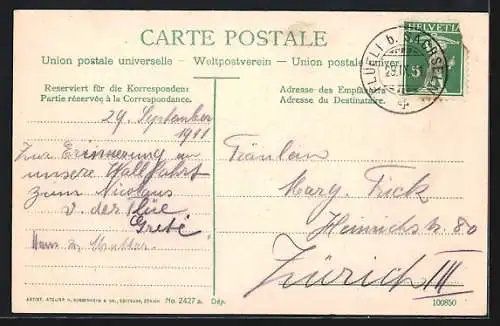 CARTE POSTALE
Union postale universelle – Weltpostverein – Union postale univer
HELVETIA
5
FLÜELI b. SACHSELN
29.IX.
Reserviert für die Korrespondenz
Partie réservée à la Correspondance.
Adresse des Empfängers
Adresse du Destinataire.
29. September
1911
Zur Erinnerung an
unsere Wallfahrt
zum Nicolaus
v. der Flüe
Grete
Fräulein
Marg. Frick
Heinrichstr. 80
Zürich III
ARTIST. ATELIER H. GUGGENHEIM & CO., EDITEURS, ZÜRICH
No. 2427 a. Dép.
100850